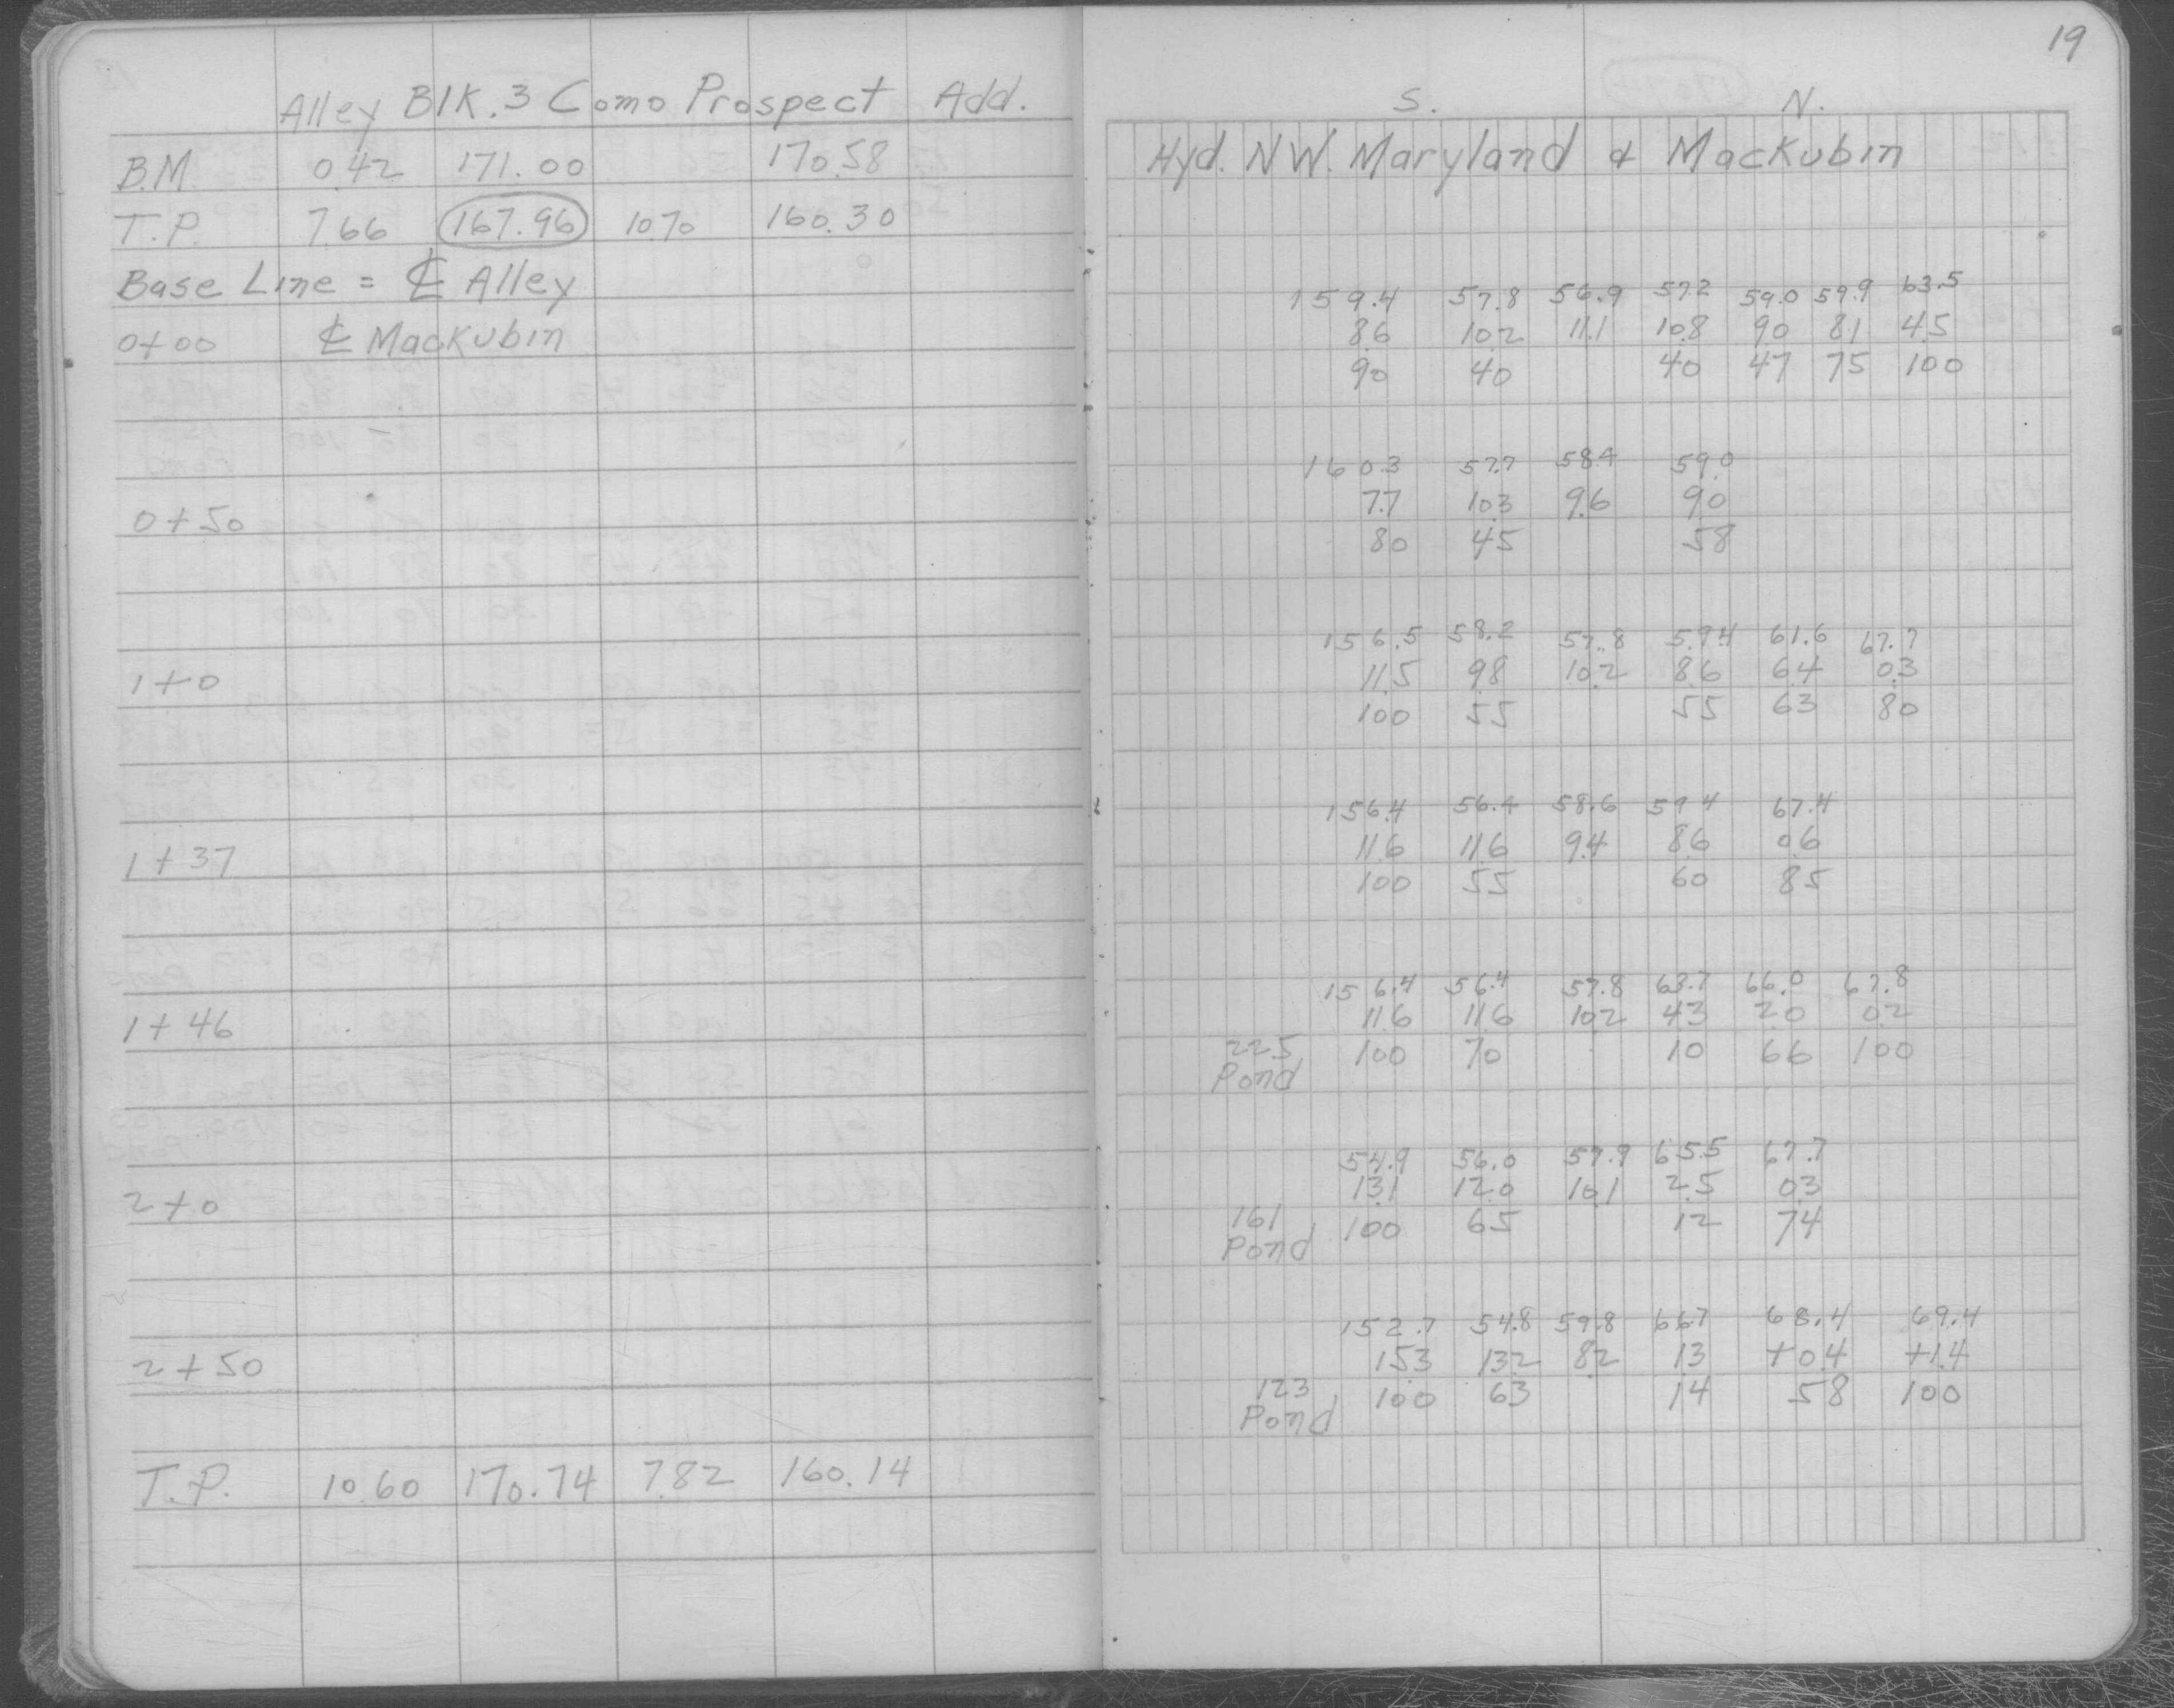 19
Alley Blk. 3 Como Prospect Add.
S. N.
B.M. 0.42 171.00 170.58
Hyd. N.W. Maryland & Mackubin
T.P. 7.66 167.96 10.70 160.30
Base Line = ℄ Alley
0+00 ℄ Mackubin
159.4 57.8 56.9 57.2 59.0 59.9 63.5
8.6 10.2 11.1 10.8 9.0 8.1 4.5
90 40 40 47 75 100
0+50
160.3 57.7 58.4 59.0
7.7 10.3 9.6 9.0
80 45 58
1+0
156.5 58.2 57.8 59.4 61.6 67.7
11.5 9.8 10.2 8.6 6.4 0.3
100 55 55 63 80
1+37
156.4 56.4 58.6 59.4 67.4
11.6 11.6 9.4 8.6 0.6
100 55 60 85
1+46
156.4 56.4 57.8 63.7 66.0 67.8
11.6 11.6 10.2 4.3 2.0 0.2
225 100 70 10 66 100
Pond
2+0
54.9 56.0 57.9 65.5 67.7
13.1 12.0 10.1 2.5 0.3
161 100 65 12 74
Pond
2+50
152.7 54.8 59.8 66.7 68.4 69.4
15.3 13.2 8.2 1.3 +0.4 +1.4
123 100 63 14 58 100
Pond
T.P. 10.60 170.74 7.82 160.14